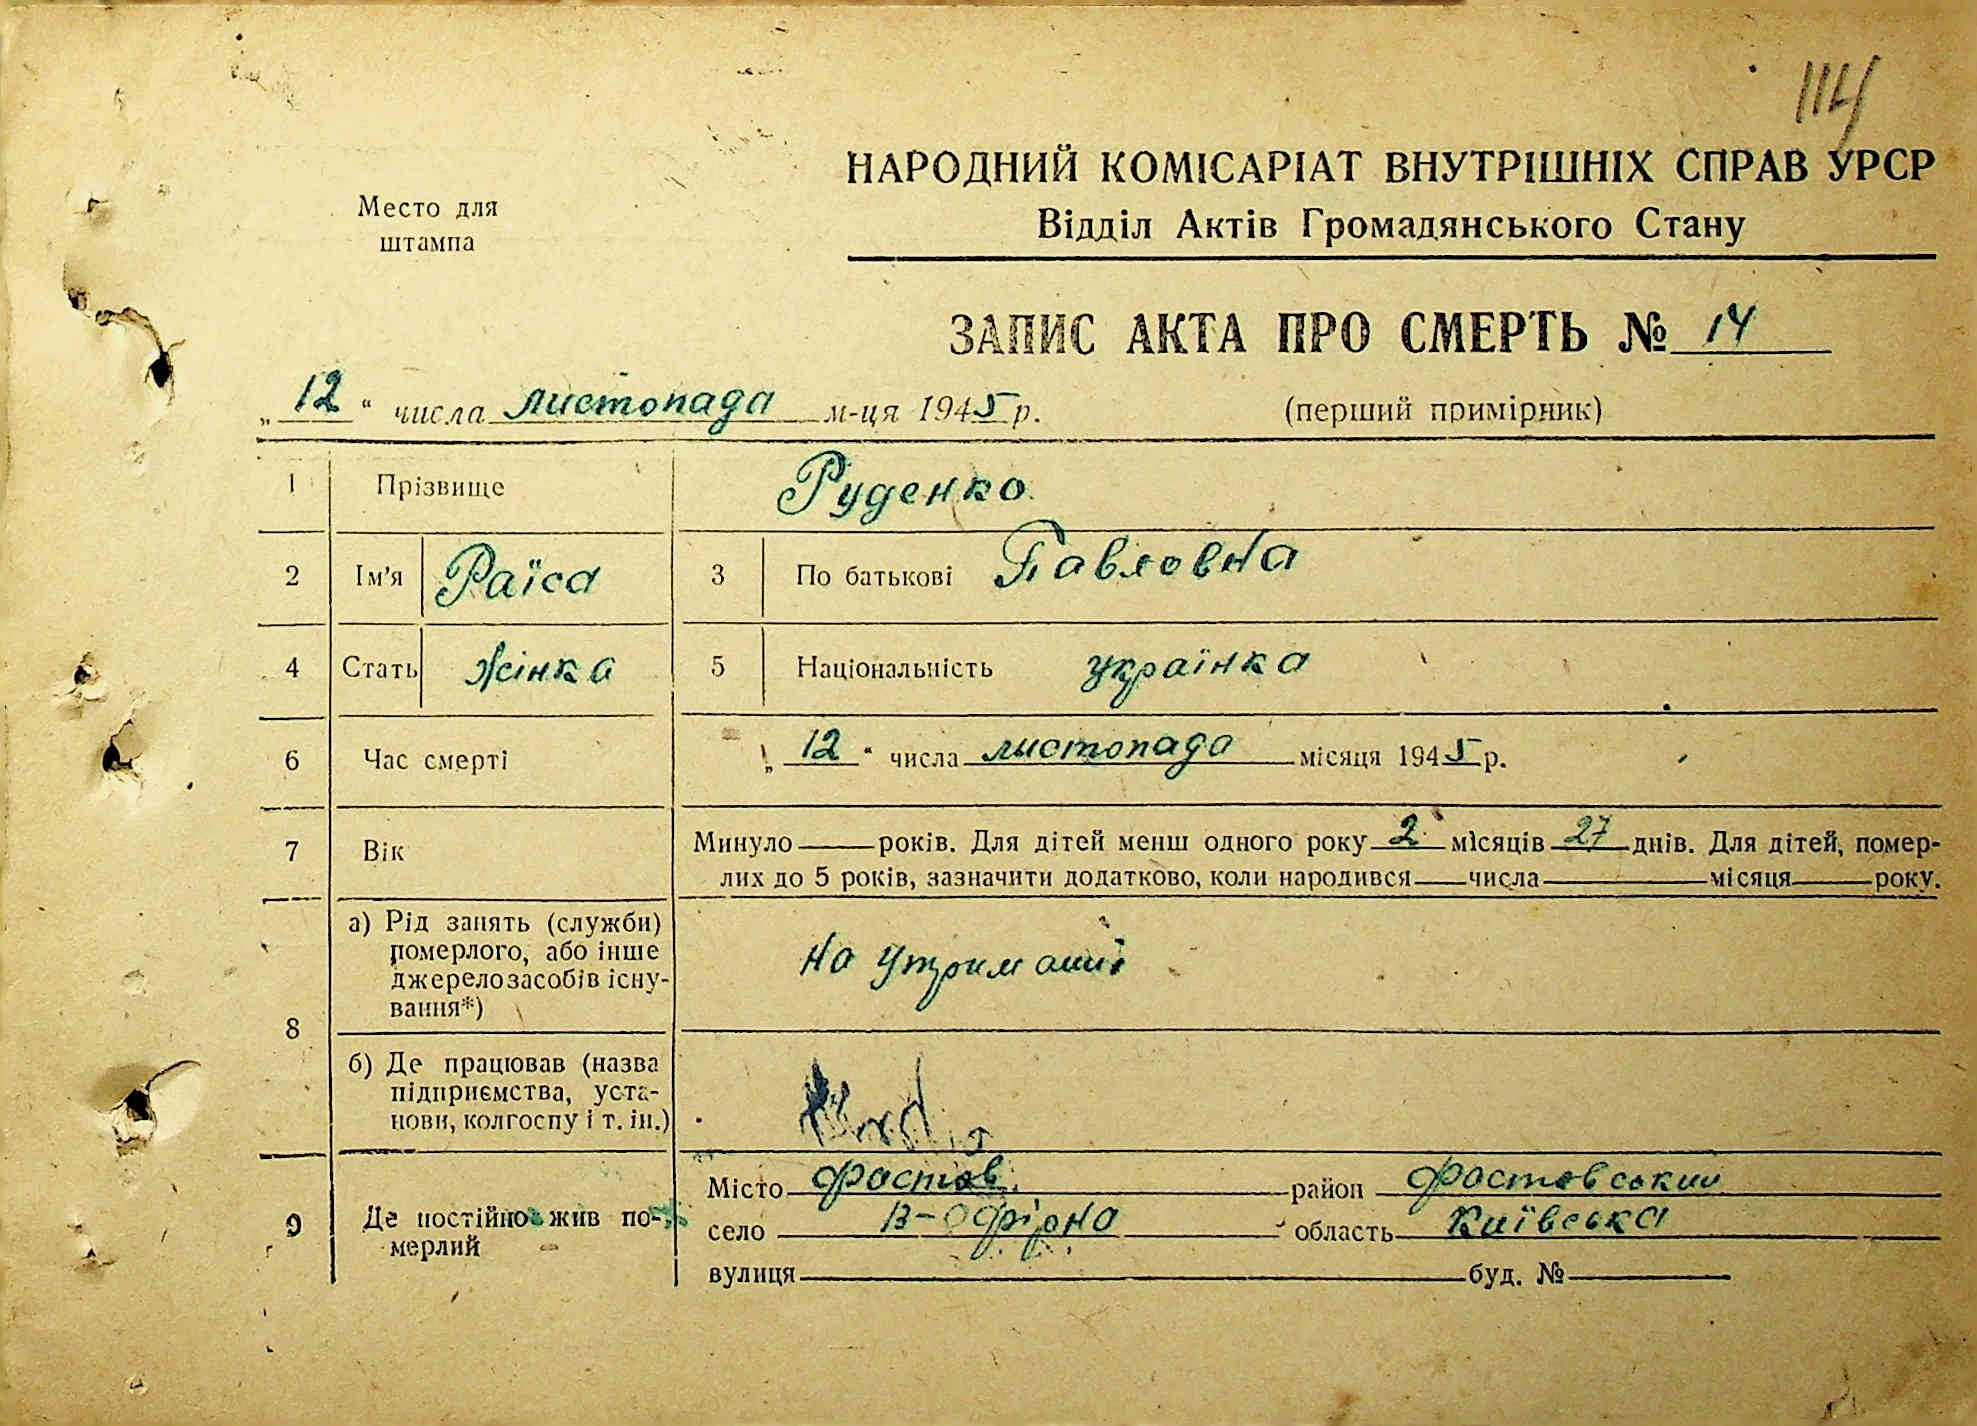 114
НАРОДНИЙ КОМІСАРІАТ ВНУТРІШНІХ СПРАВ УРСР
Место для
штампа
Відділ Актів Громадянського Стану
ЗАПИС АКТА ПРО СМЕРТЬ № 14
„12“ числа листопада м-ця 1945 р.
(перший примірник)
1 Прізвище Руденко
2 Ім'я Раїса 3 По батькові Павловна
4 Стать жінка 5 Національність українка
6 Час смерті „12“ числа листопада місяця 1945 р.
7 Вік Минуло — років. Для дітей менш одного року 2 місяців 27 днів. Для дітей, помер-
лих до 5 років, зазначити додатково, коли народився числа місяця року.
8 а) Рід занять (служби)
померлого, або інше
джерело засобів існу-
вання*)
на утриманні
б) Де працював (назва
підприємства, уста-
нови, колгоспу і т. ін.)
9 Де постійно жив по-
мерлий
Місто Фастів район Фастовський
село В-Офірна область Київська
вулиця буд. №